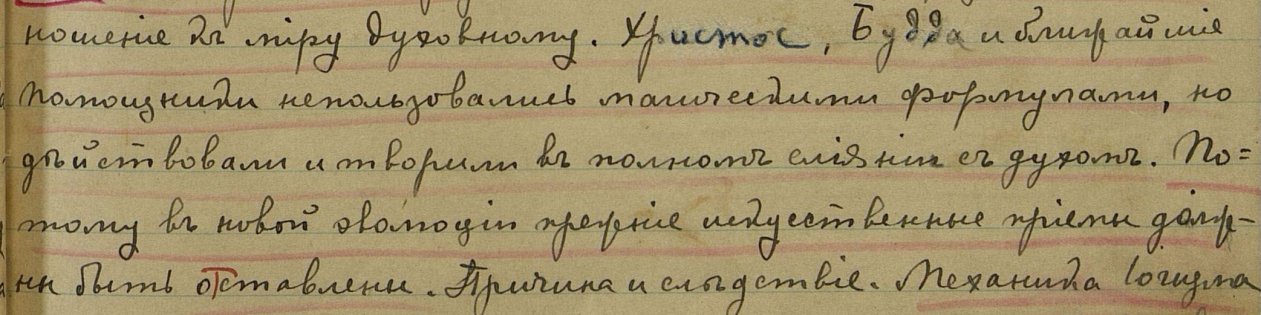 ношенiе къ мiру духовному. Христос, Будда и ближайшiе
помощники непользовались магическими формулами, но
дѣйствовали и творили въ полномъ слiянiи съ духомъ. По=
тому въ новой эволюцiи прежнiе искусственные прiемы долж-
ны быть отставлены. Причина и слѣдствiе. Механика Iогизма